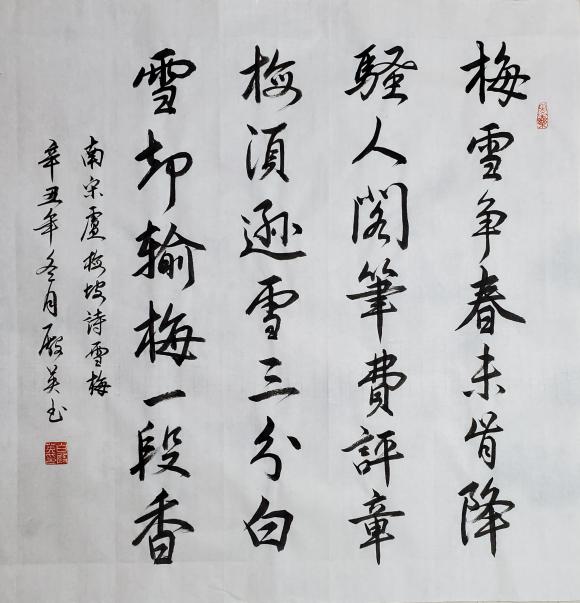 梅雪争春未肯降
骚人閣筆費評章
梅須遜雪三分白
雪却輸梅一段香
南宋盧梅坡詩雪梅
辛丑年冬月殿英书